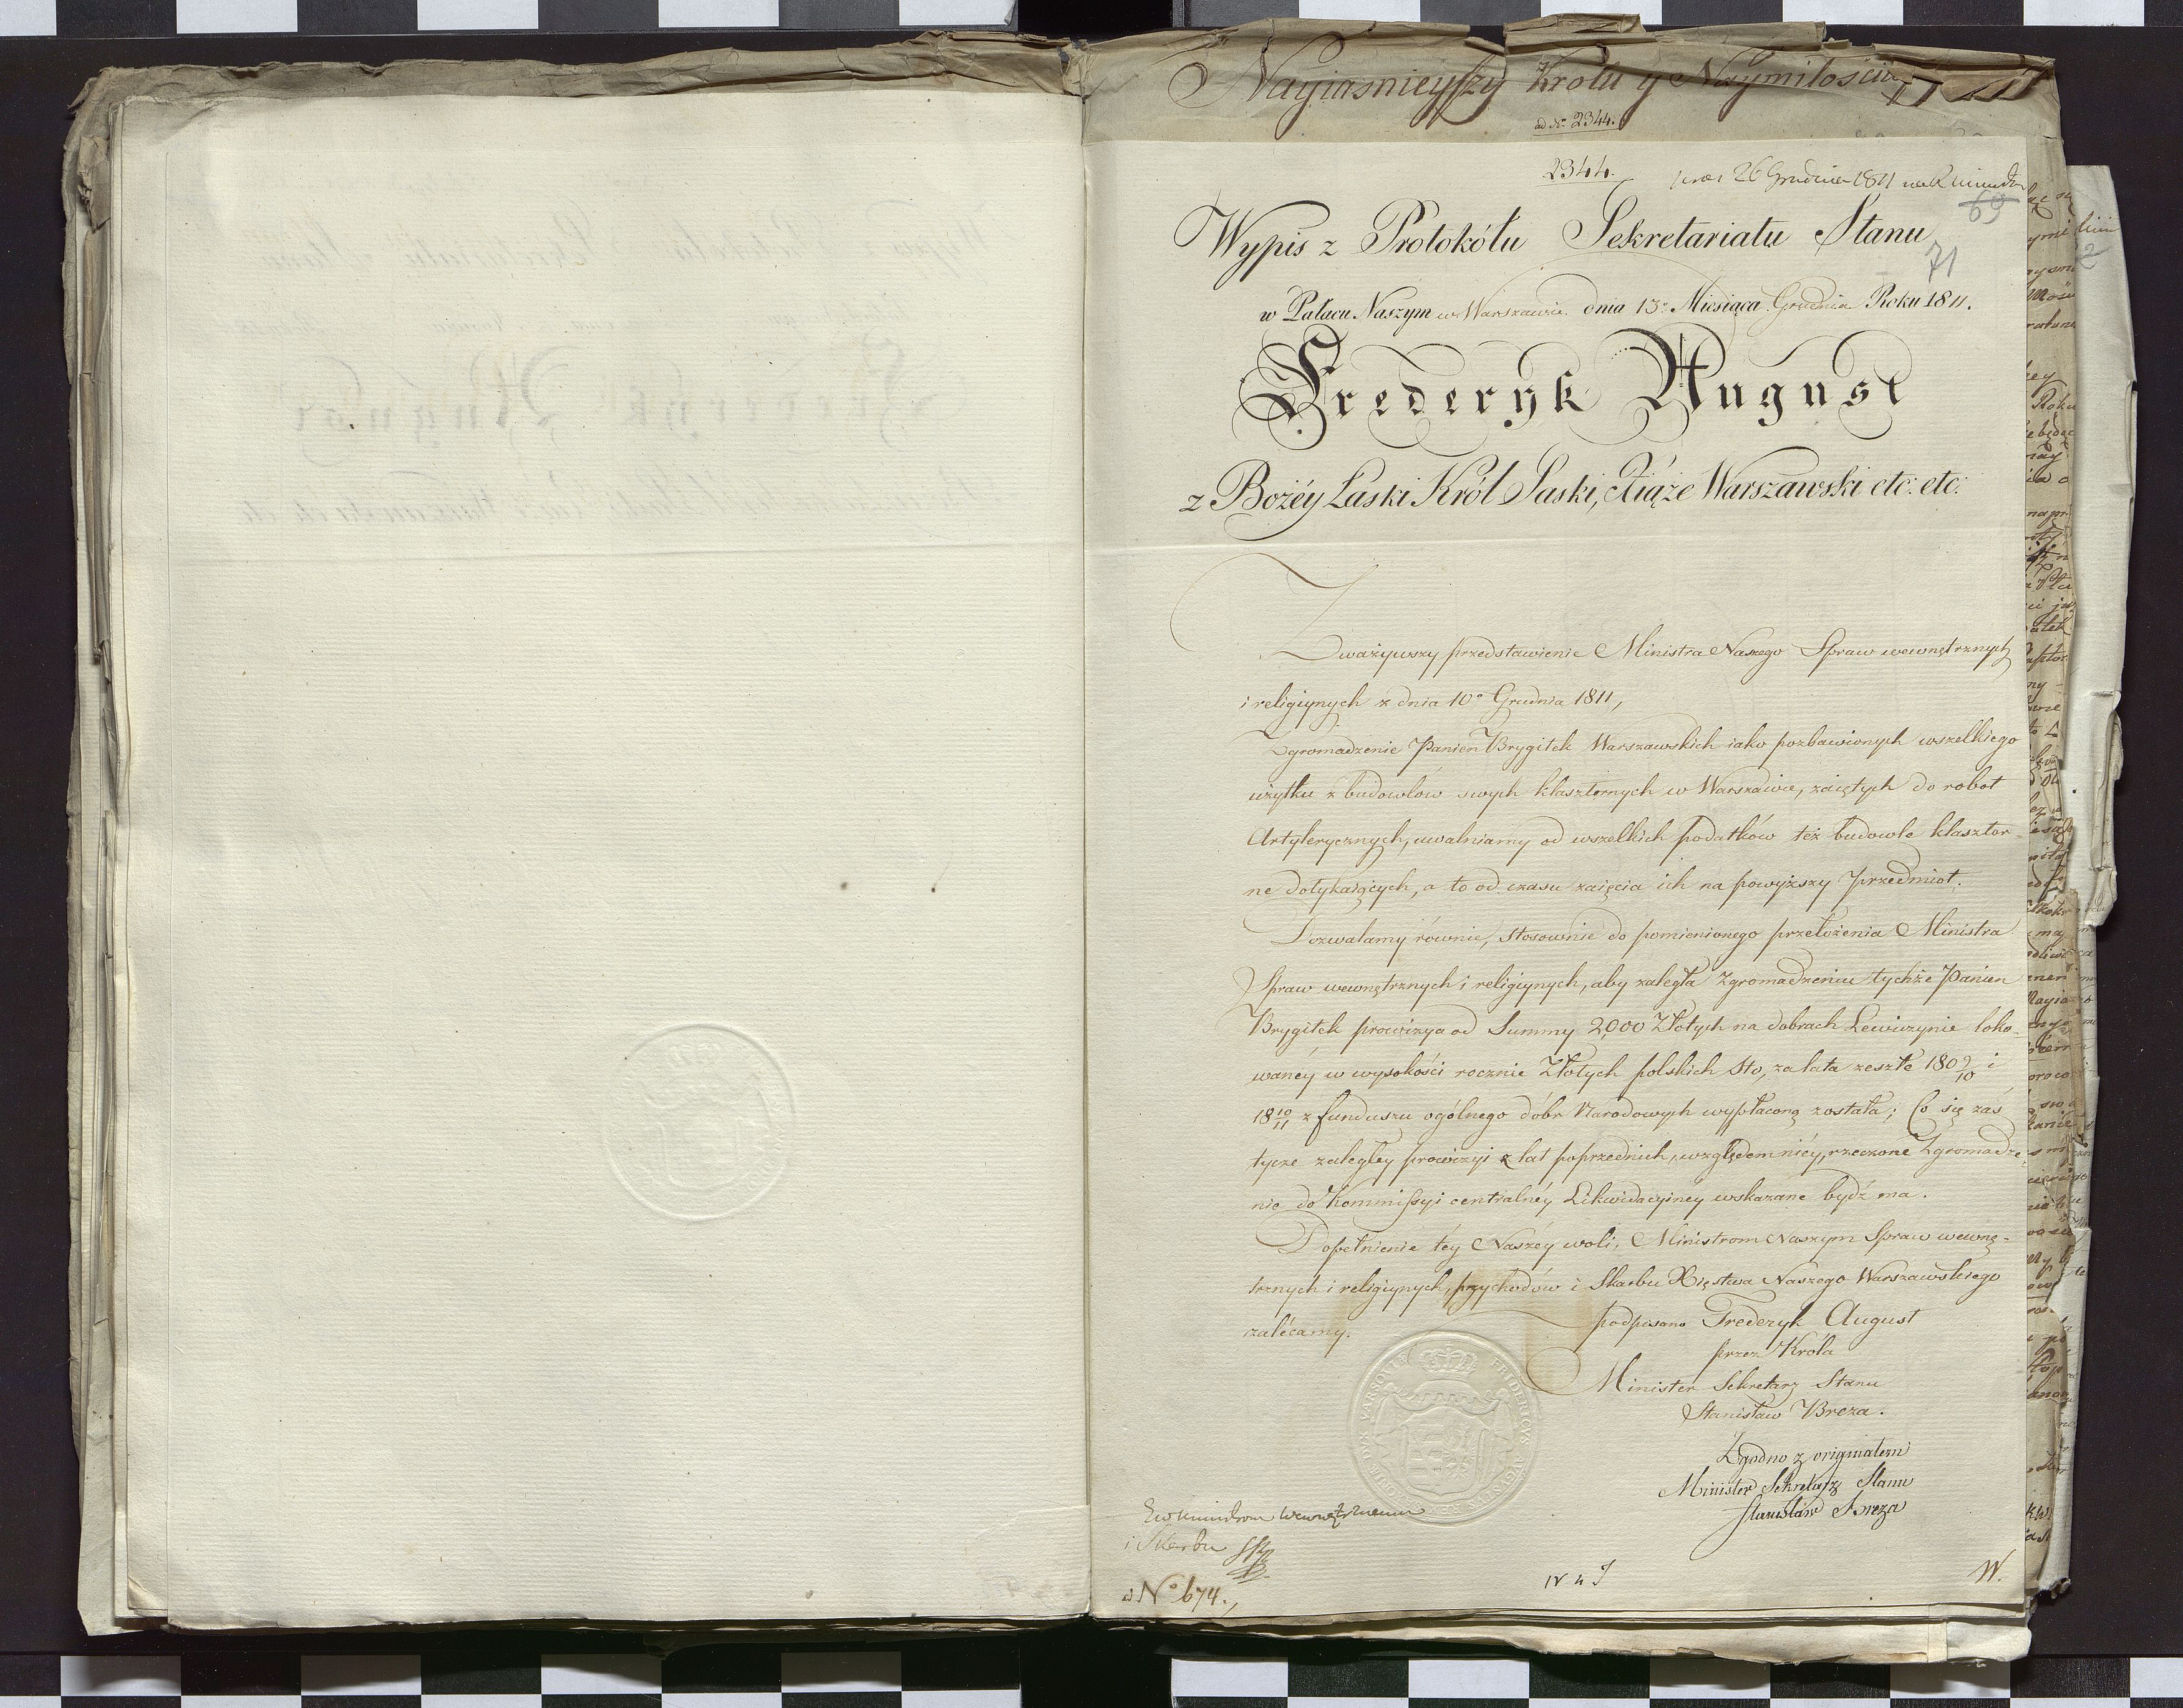 Nayiasnieyszy Krolu y Naymiłościw
ad No 2344.
2344.
26 Grudnia 1811
69
Wypis z Protokółu Sekretariatu Stanu
71
w Pałacu Naszym w Warszawie dnia 13o Miesiąca Grudnia Roku 1811.
Frederyk August
z Bożéy Łaski Król Saski, Xiąże Warszawski etc: etc:
Zważywszy przedstawienie Ministra Naszego Spraw wewnętrznych
i religiynych z dnia 10o Grudnia 1811,
Zgromadzenie Panien Brygitek Warszawskich iako pozbawionych wszelkiego
użytku z budowlów swych klasztornych w Warszawie, zaiętych do robot
Artylerycznych, uwalniamy od wszelkich podatków też budowle klasztor-
ne dotykaiących, a to od czasu zaięcia ich na powyższy przedmiot.
Dozwalamy równie, stosownie do pomienionego przełożenia Ministra
Spraw wewnętrznych i religiynych, aby zaległa Zgromadzeniu tychże Panien
Brygitek prowizya od Summy 2,000 Złotych na dobrach Lewiczynie loko-
wanéy w wysokości rocznie Złotych polskich sto, za lata zeszłe 1809/10 i
1810/11 z funduszu ogólnego dóbr Narodowych wypłaconą została; Co się zaś
tycze zaległey prowizyi z lat poprzednich, względem niéy, rzeczone Zgromadze-
nie do Kommissyi centralnéy Likwidacyiney wskazane bydź ma.
Dopełnienie téy Naszéy woli, Ministrom Naszym Spraw wewnę-
trznych i religiynych, przychodów i Skarbu Xięstwa Naszego Warszawskiego
zalécamy.
podpisano Frederyk August
przez Króla
Minister Sekretarz Stanu
Stanisław Breza.
FRIDERICVS AVGVSTVS REX SAXONIAE DVX VARSOVIAE
Zgodno z originałem
Minister Sekretarz Stanu
Stanisław Breza
wewnętrznemu
i Skarbu
ad No 674.
W.